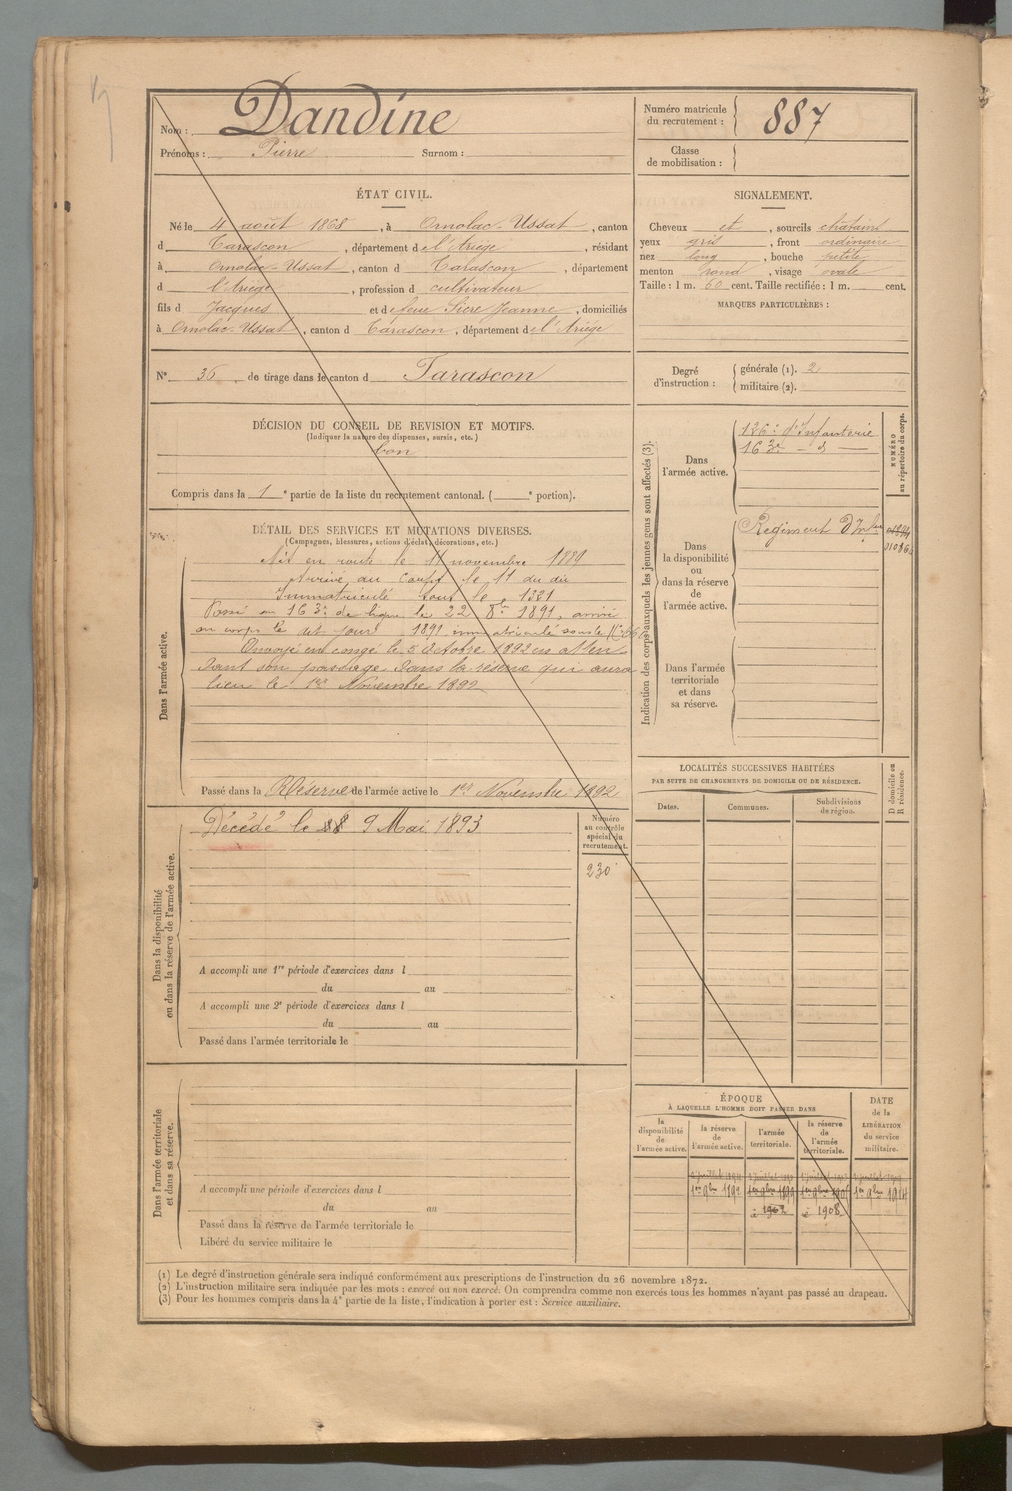 Nom : Dandine
Prénoms : Pierre Surnom :
Numéro matricule du recrutement : 887
Classe de mobilisation :
ÉTAT CIVIL.
Né le 4 août 1868, à Ornolac-Ussat, canton
d Tarascon, département de l'Ariège, résidant
à Ornolac-Ussat, canton d Tarascon, département
d l'Ariège, profession d cultivateur
fils d Jacques et d feue Sicre Jeanne, domiciliés
à Ornolac-Ussat, canton d Tarascon, département de l'Ariége
SIGNALEMENT.
Cheveux et, sourcils chatains
yeux gris, front ordinaire
nez long, bouche petite
menton rond, visage ovale
Taille : 1 m. 60 cent. Taille rectifiée : 1 m. cent.
MARQUES PARTICULIÈRES :
N° 36 de tirage dans le canton d Tarascon
Degré d'instruction :
générale (1). 2
militaire (2).
DÉCISION DU CONSEIL DE REVISION ET MOTIFS.
(Indiquer la nature des dispenses, sursis, etc.)
bon
Compris dans la 1e partie de la liste du recrutement cantonal. ( e portion).
DÉTAIL DES SERVICES ET MUTATIONS DIVERSES.
(Campagnes, blessures, actions d'éclat, décorations, etc.)
Dans l'armée active.
Mis en route le 11 novembre 1889
Arrivé au corps le 11 du dit
Immatriculé sous le 1321
Passé au 163e de ligne le 22 8bre 1891, arrivé
au corps le dit jour 1891, immatriculé sous le N°
Envoyé en congé le 5 Octobre 1892 en atten
dant son passage dans la réserve qui aura
lieu le 1er Novembre 1892
Passé dans la Réserve de l'armée active le 1er Novembre 1892
Indication des corps auxquels les jeunes gens sont affectés (3).
Dans l'armée active.
126e d'Infanterie
163e - d -
NUMÉRO au répertoire du corps.
Dans la disponibilité ou dans la réserve de l'armée active.
Régiment D'Inf
Dans l'armée territoriale et dans sa réserve.
Dans la disponibilité ou dans la réserve de l'armée active.
Décédé le 9 Mai 1893
Numéro au contrôle spécial du recrutement.
230
A accompli une 1re période d'exercices dans l
du au
A accompli une 2e période d'exercices dans l
du au
Passé dans l'armée territoriale le
LOCALITÉS SUCCESSIVES HABITÉES
PAR SUITE DE CHANGEMENTS DE DOMICILE OU DE RÉSIDENCE.
Dates. Communes. Subdivisions de région. D domicile ou R résidence.
Dans l'armée territoriale et dans sa réserve.
A accompli une période d'exercices dans l
du au
Passé dans la réserve de l'armée territoriale le
Libéré du service militaire le
ÉPOQUE
À LAQUELLE L'HOMME DOIT PASSER DANS
la disponibilité de l'armée active. la réserve de l'armée active. l'armée territoriale. la réserve de l'armée territoriale.
DATE de la LIBÉRATION du service militaire.
1er 9bre 1892 1er 9bre 1899 1er 9bre 1er 9bre 1914
à 1908
(1) Le degré d'instruction générale sera indiqué conformément aux prescriptions de l'instruction du 26 novembre 1872.
(2) L'instruction militaire sera indiquée par les mots : exercé ou non exercé. On comprendra comme non exercés tous les hommes n'ayant pas passé au drapeau.
(3) Pour les hommes compris dans la 4e partie de la liste, l'indication à porter est : Service auxiliaire.